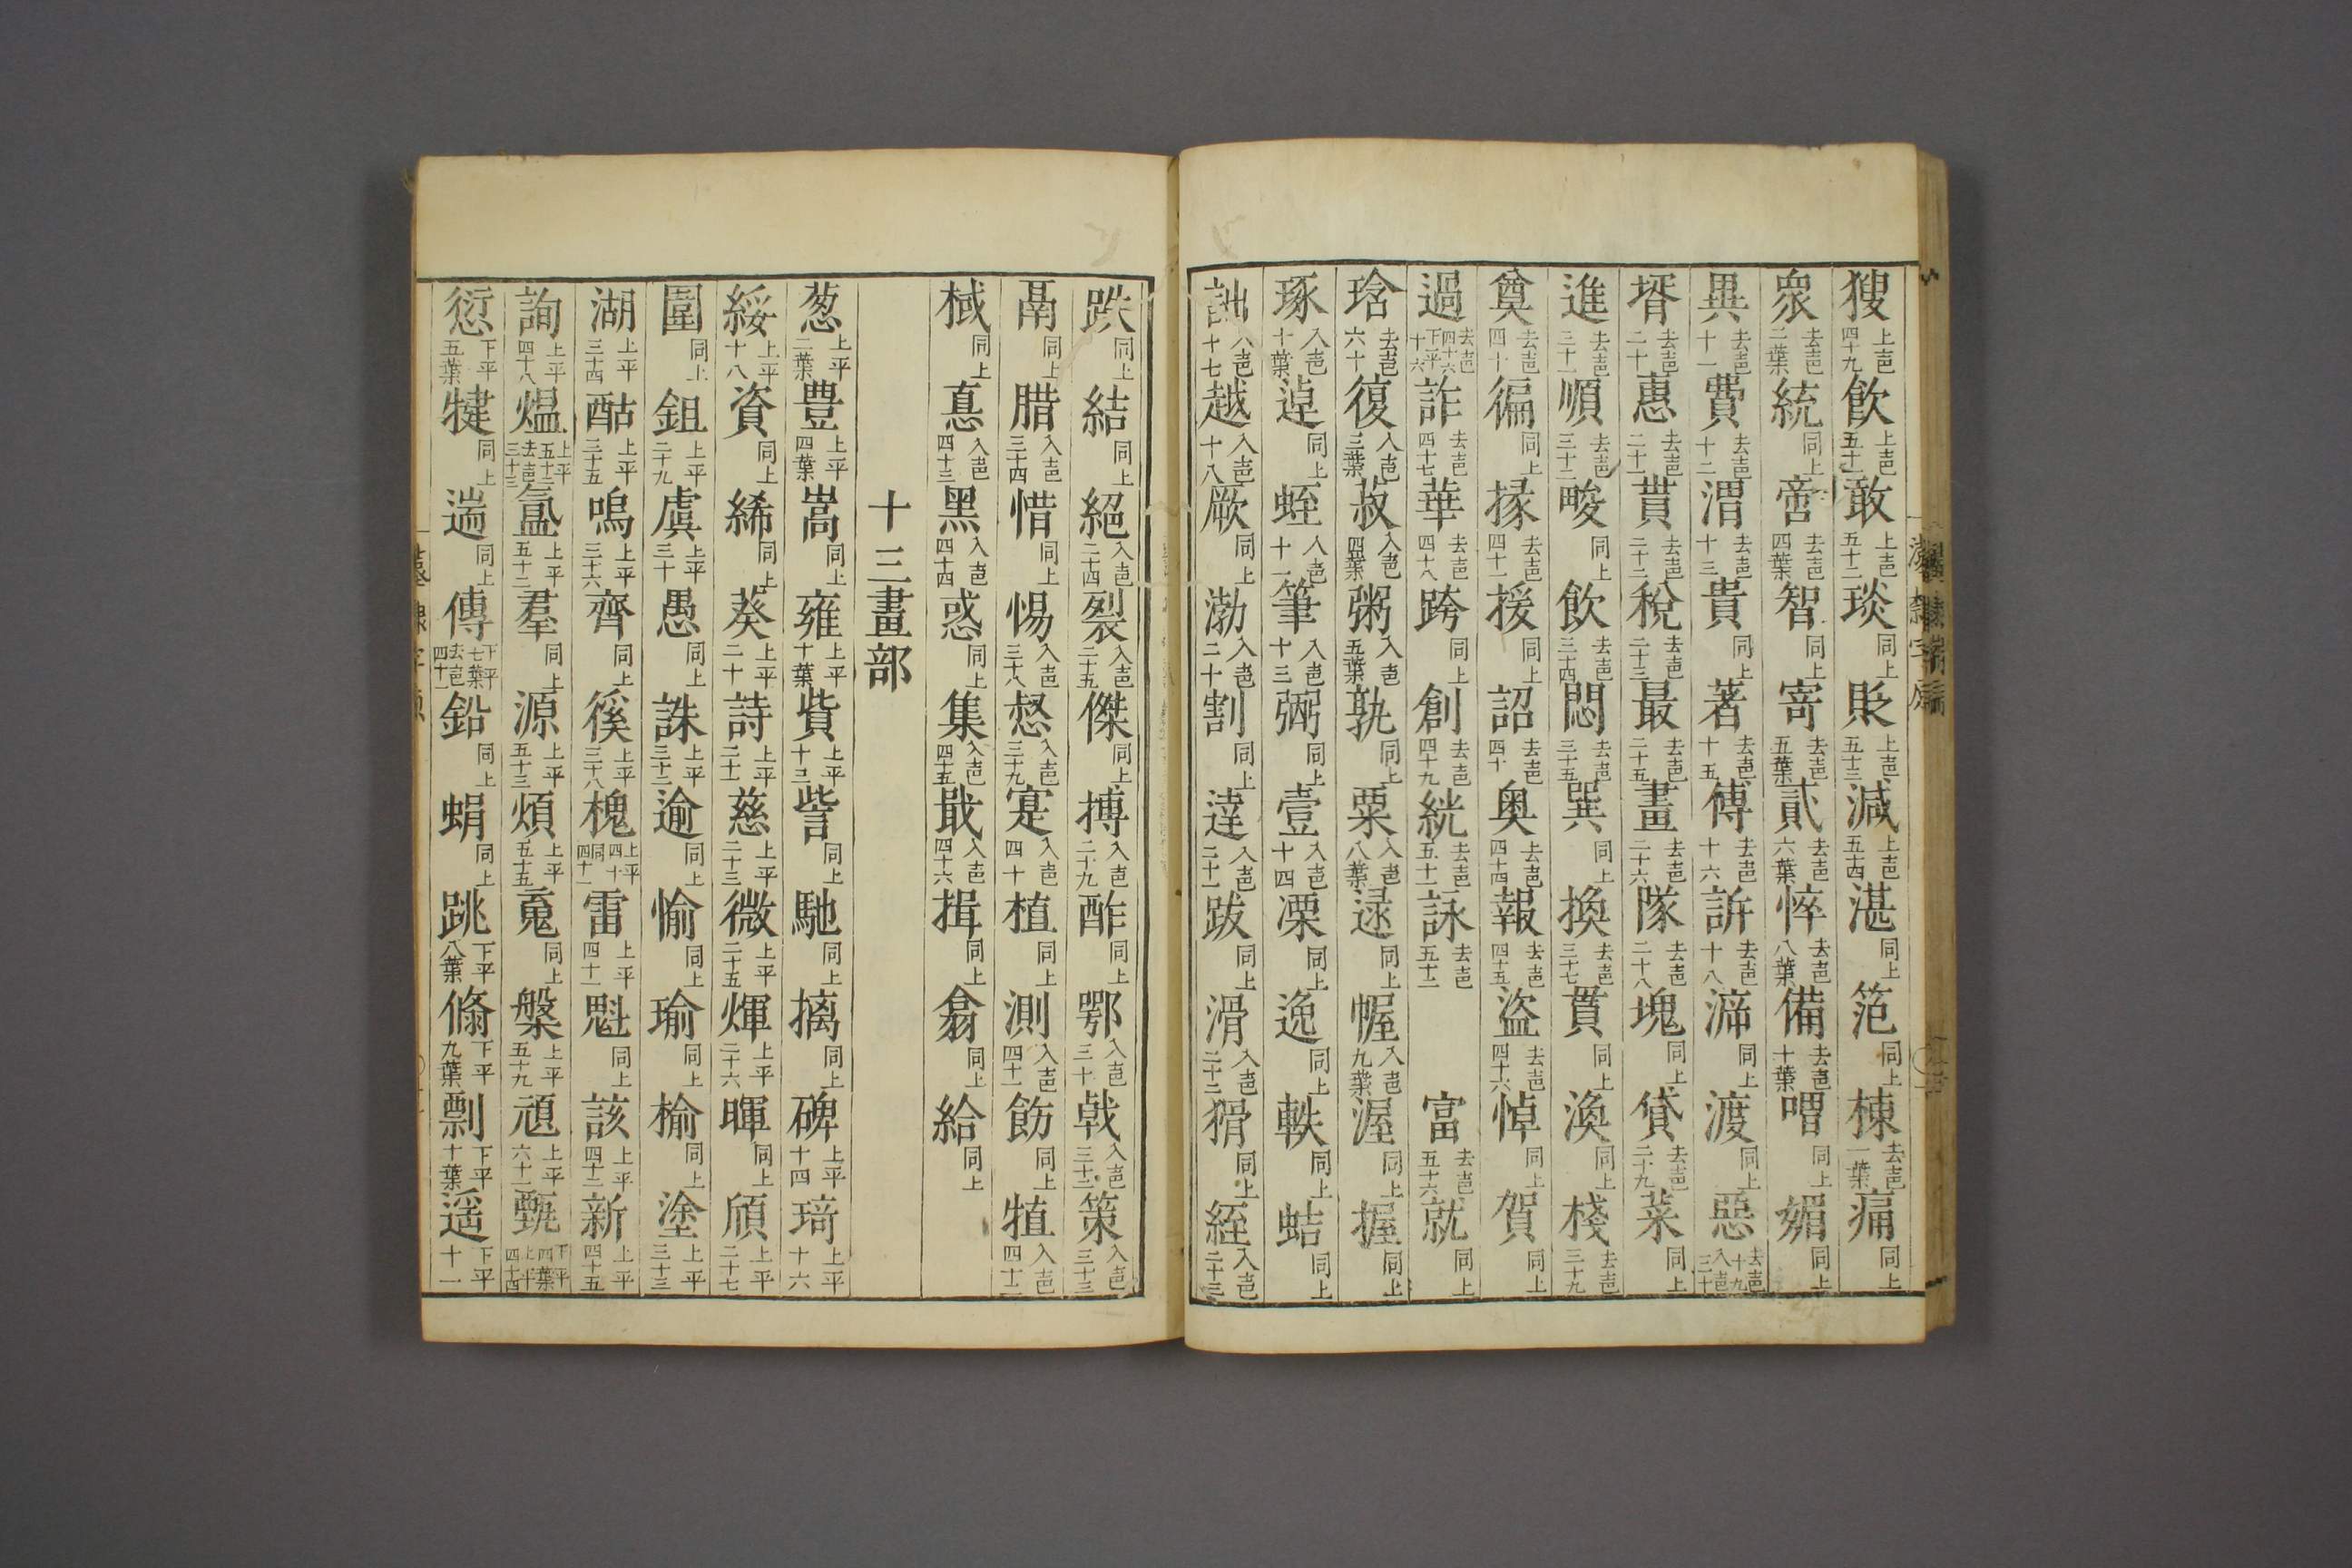 獀上声四十九飲上声五十一敢上声五十二琰同上貶上声五十三減上声五十四湛同上范同上棟去声一葉痛同上
衆去声二葉統同上啻去声四葉智同上寄去声五葉貳去声六葉悴去声八葉備去声十葉喟同上媚同上
異去声十一費去声十二渭去声十三貴同上著去声十五傅去声十六訴去声十八渧同上渡同上惡去声十九入声三十
壻去声二十惠去声二十一貰去声二十二稅去声二十三最去声二十五畫去声二十六隊去声二十八塊同上貸去声二十九菜同上
進去声三十一順去声三十二畯同上飲去声三十四悶去声三十五巽同上換去声三十七貫同上渙同上棧去声三十九
奠去声四十徧同上掾去声四十一援同上詔去声四十奧去声四十四報去声四十五盜去声四十六悼同上賀同上
過去声四十六下平十六詐去声四十七華去声四十八跨同上創去声四十九絖去声五十一詠去声五十二富去声五十六就同上
琀去声六十復入声三葉菽入声四葉粥入声五葉孰同上粟入声八葉逯同上幄入声九葉渥同上握同上
琢入声十葉逴同上蛭入声十一筆入声十三弼同上壹入声十四溧同上逸同上軼同上蛣同上
詘入声十七越入声十八厥同上渤入声二十割同上達入声二十一跋同上滑入声二十二猾同上絰入声二十三
跌同上結同上絕入声二十四裂入声二十五傑同上搏入声二十九酢同上鄂入声三十戟入声三十二策入声三十三
鬲同上腊入声三十四惜同上惕入声三十八惄入声三十九寔入声四十植同上測入声四十一飭同上犆入声四十二
棫同上惪入声四十三黑入声四十四惑同上集入声四十五戢入声四十六揖同上翕同上給同上
十三畫部
葱上平二葉豊上平四葉嵩同上雍上平十葉貲上平十三訾同上馳同上摛同上碑上平十四琦上平十六
綏上平十八資同上絺同上葵上平二十詩上平二十一慈上平二十三微上平二十五煇上平二十六暉同上頎上平二十七
圍同上鉏上平二十九虞上平三十愚同上誅上平三十二逾同上愉同上瑜同上榆同上塗上平三十三
湖上平三十四酤上平三十五嗚上平三十六齊同上徯上平三十八槐上平四十同四十一雷上平四十一魁同上該上平四十二新上平四十五
詢上平四十八熅上平五十二去声三十三氳上平五十二羣同上源上平五十三煩上平五十五䰟同上槃上平五十九頑上平六十一甄下平四葉上平四十四
愆下平五葉犍同上遄同上傳下平七葉去声四十一鉛同上蜎同上跳下平八葉脩下平九葉剽下平十葉遥下平十一